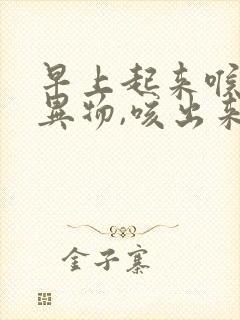 早上起来喉
異物,咳出来
金子寨